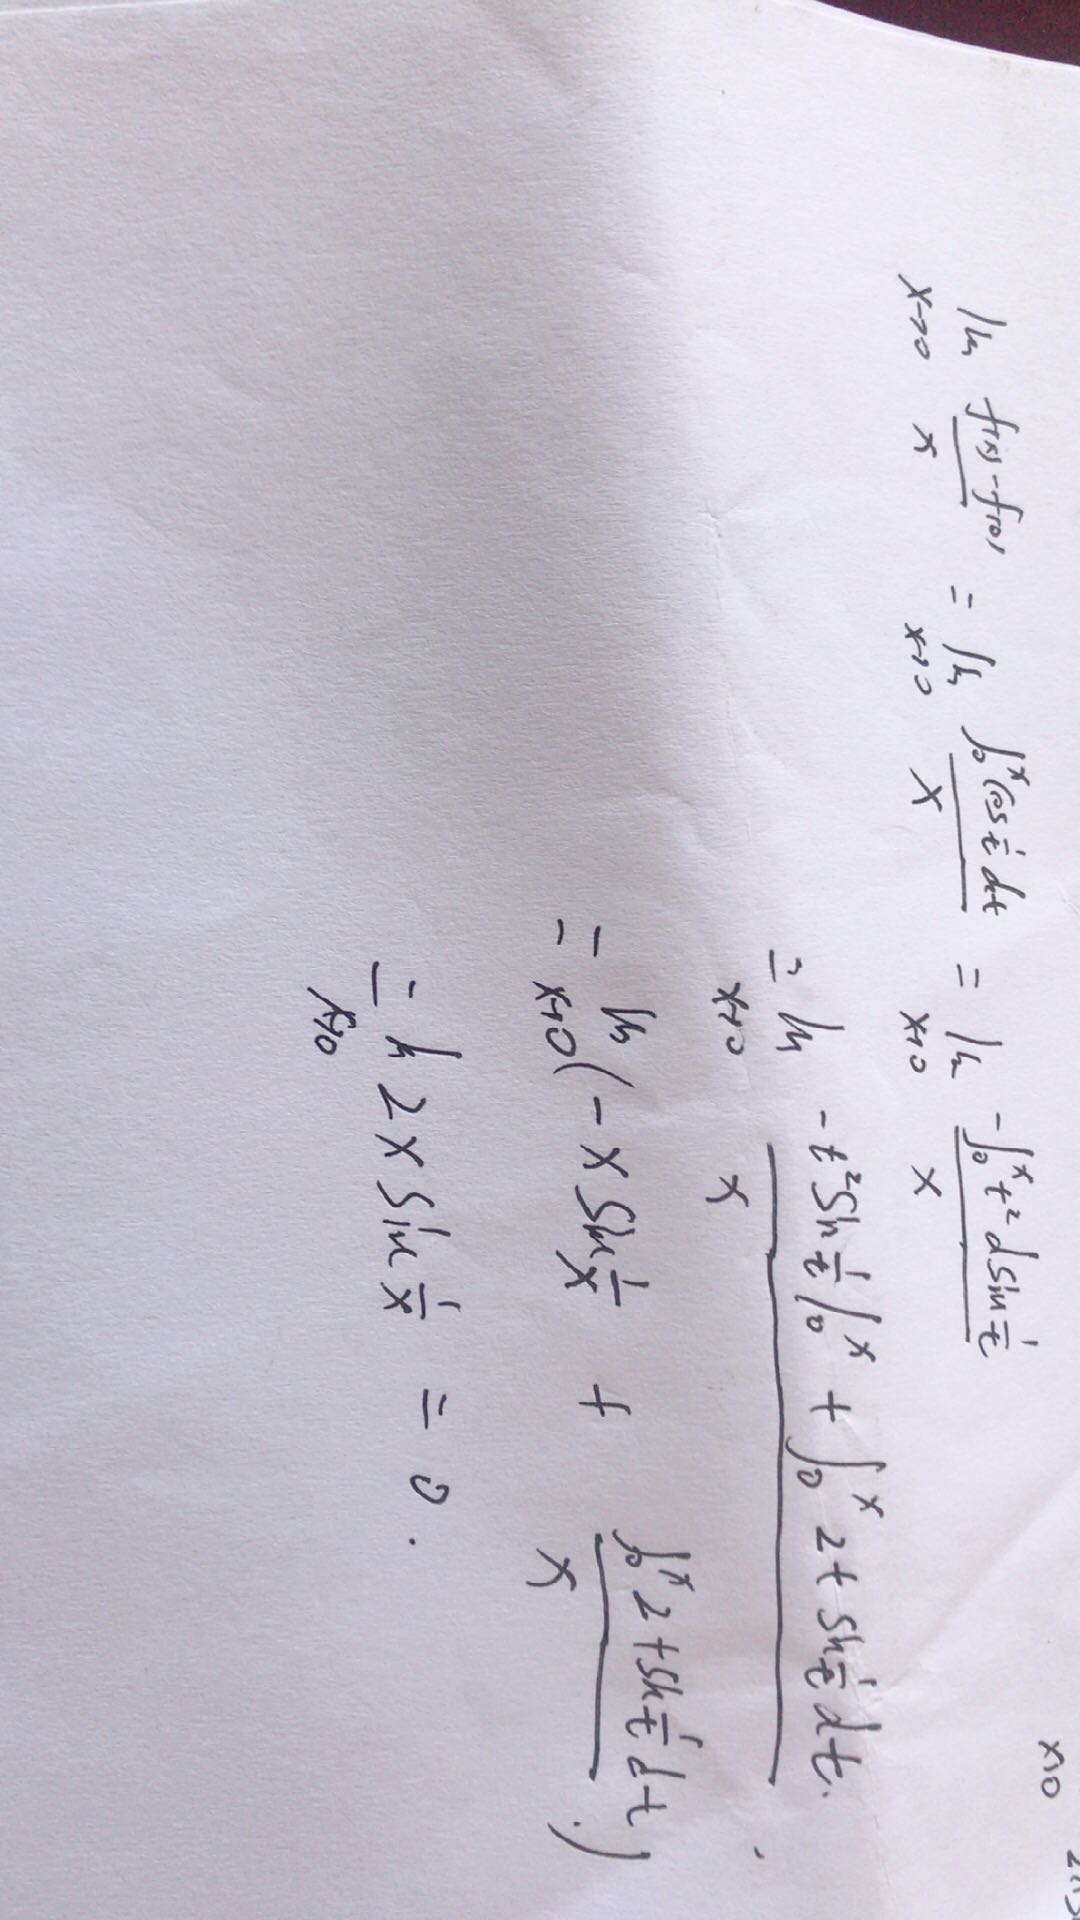 lim_{x→0} \frac{f(x)-f(0)}{x} = lim_{x→0} \frac{∫_0^x cos\frac{1}{t} dt}{x} = lim_{x→0} \frac{-∫_0^x t^2 d sin\frac{1}{t}}{x}
= lim_{x→0} \frac{-t^2 sin\frac{1}{t}|_0^x + ∫_0^x 2t sin\frac{1}{t} dt.}{x}
= lim_{x→0} (-x sin\frac{1}{x} + \frac{∫_0^x 2t sin\frac{1}{t} dt}{x})
= lim_{x→0} 2x sin\frac{1}{x} = 0.
x→0